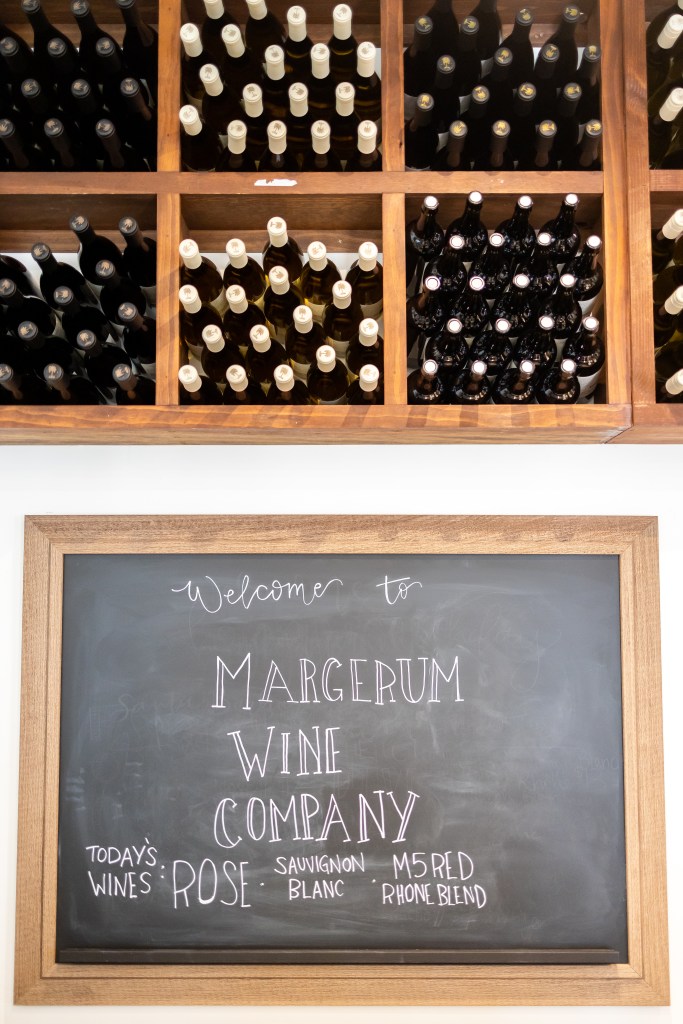 Welcome to
MARGERUM
WINE
COMPANY
TODAY'S
WINES:
ROSE ·
SAUVIGNON
BLANC ·
M5 RED
RHONE BLEND